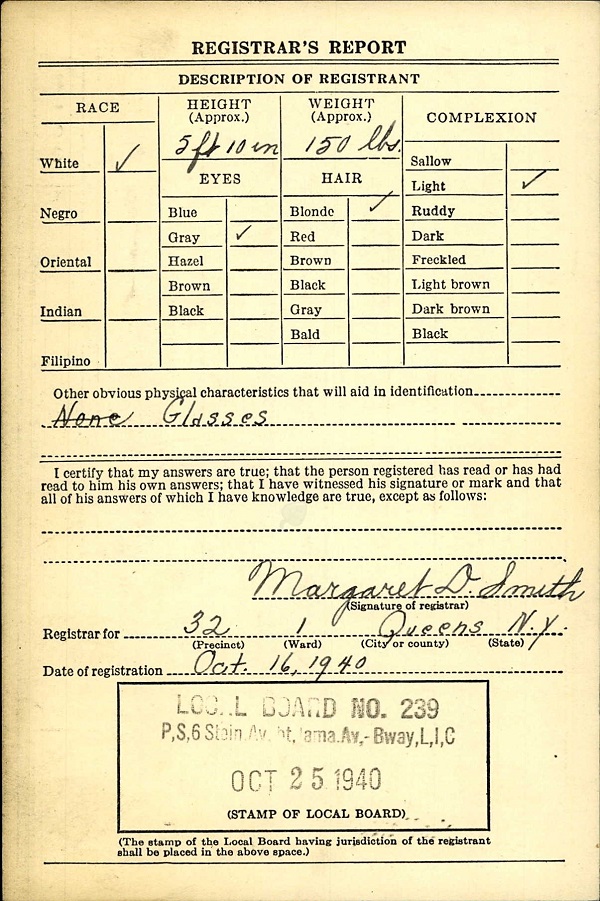 REGISTRAR'S REPORT
DESCRIPTION OF REGISTRANT
RACE
HEIGHT
(Approx.)
WEIGHT
(Approx.)
COMPLEXION
5 ft 10 in
150 lbs.
White ✓
EYES
HAIR
Sallow
Light ✓
Negro
Blue
Blonde ✓
Ruddy
Gray ✓
Red
Dark
Oriental
Hazel
Brown
Freckled
Brown
Black
Light brown
Indian
Black
Gray
Dark brown
Bald
Black
Filipino
Other obvious physical characteristics that will aid in identification
None Glasses
I certify that my answers are true; that the person registered has read or has had
read to him his own answers; that I have witnessed his signature or mark and that
all of his answers of which I have knowledge are true, except as follows:
Margaret D. Smith
(Signature of registrar)
Registrar for 32 1 Queens N.Y.
(Precinct) (Ward) (City or county) (State)
Date of registration Oct. 16, 1940
LOCAL BOARD NO. 239
P,S,6 Stein.Av. Av,- Bway,L,I,C
OCT 25 1940
(STAMP OF LOCAL BOARD)
(The stamp of the Local Board having jurisdiction of the registrant
shall be placed in the above space.)